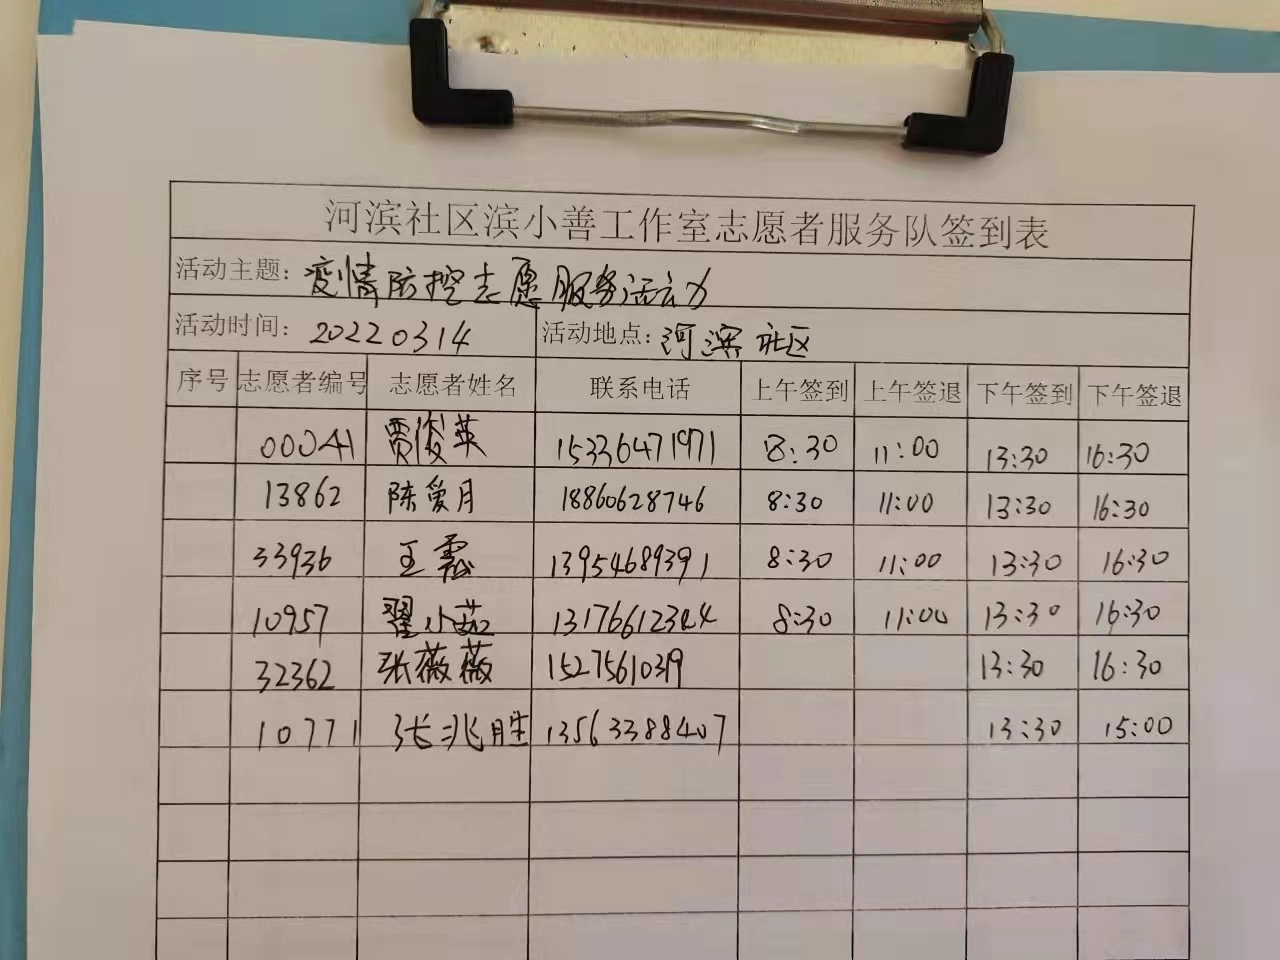 河滨社区滨小善工作室志愿者服务队签到表
活动主题: 疫情防控志愿服务活动
活动时间: 20220314 活动地点: 河滨社区
序号 志愿者编号 志愿者姓名 联系电话 上午签到 上午签退 下午签到 下午签退
00041 贾俊英 15336471971 8:30 11:00 13:30 16:30
13862 陈爱月 18860628746 8:30 11:00 13:30 16:30
33936 王霞 13954689391 8:30 11:00 13:30 16:30
10957 翟小茹 13176612344 8:30 11:00 13:30 16:30
32362 张薇薇 1527561039 13:30 16:30
10771 张兆胜 13563388407 13:30 15:00